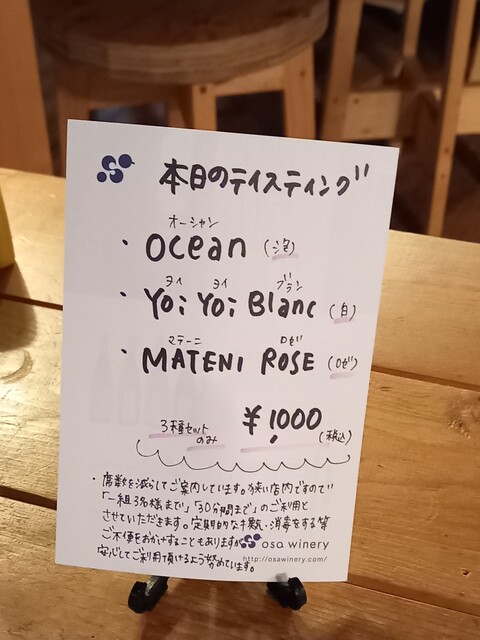 本日のテイスティング
オーシャン
・ocean (泡)
ヨイ ヨイ ブラン
・Yoi Yoi Blanc (白)
マテーニ ロゼ
・MATENI ROSE (ロゼ)
3種セットのみ ¥1,000 (税込)
・席数を減らしてご案内しています。狭い店内ですので
「一組3名様まで」「30分間まで」のご利用と
させていただきます。定期的な手数・消毒をする等
ご不便をおかけすることもありますが
安心してご利用頂けるよう努めています。
osa winery
http://osawinery.com/